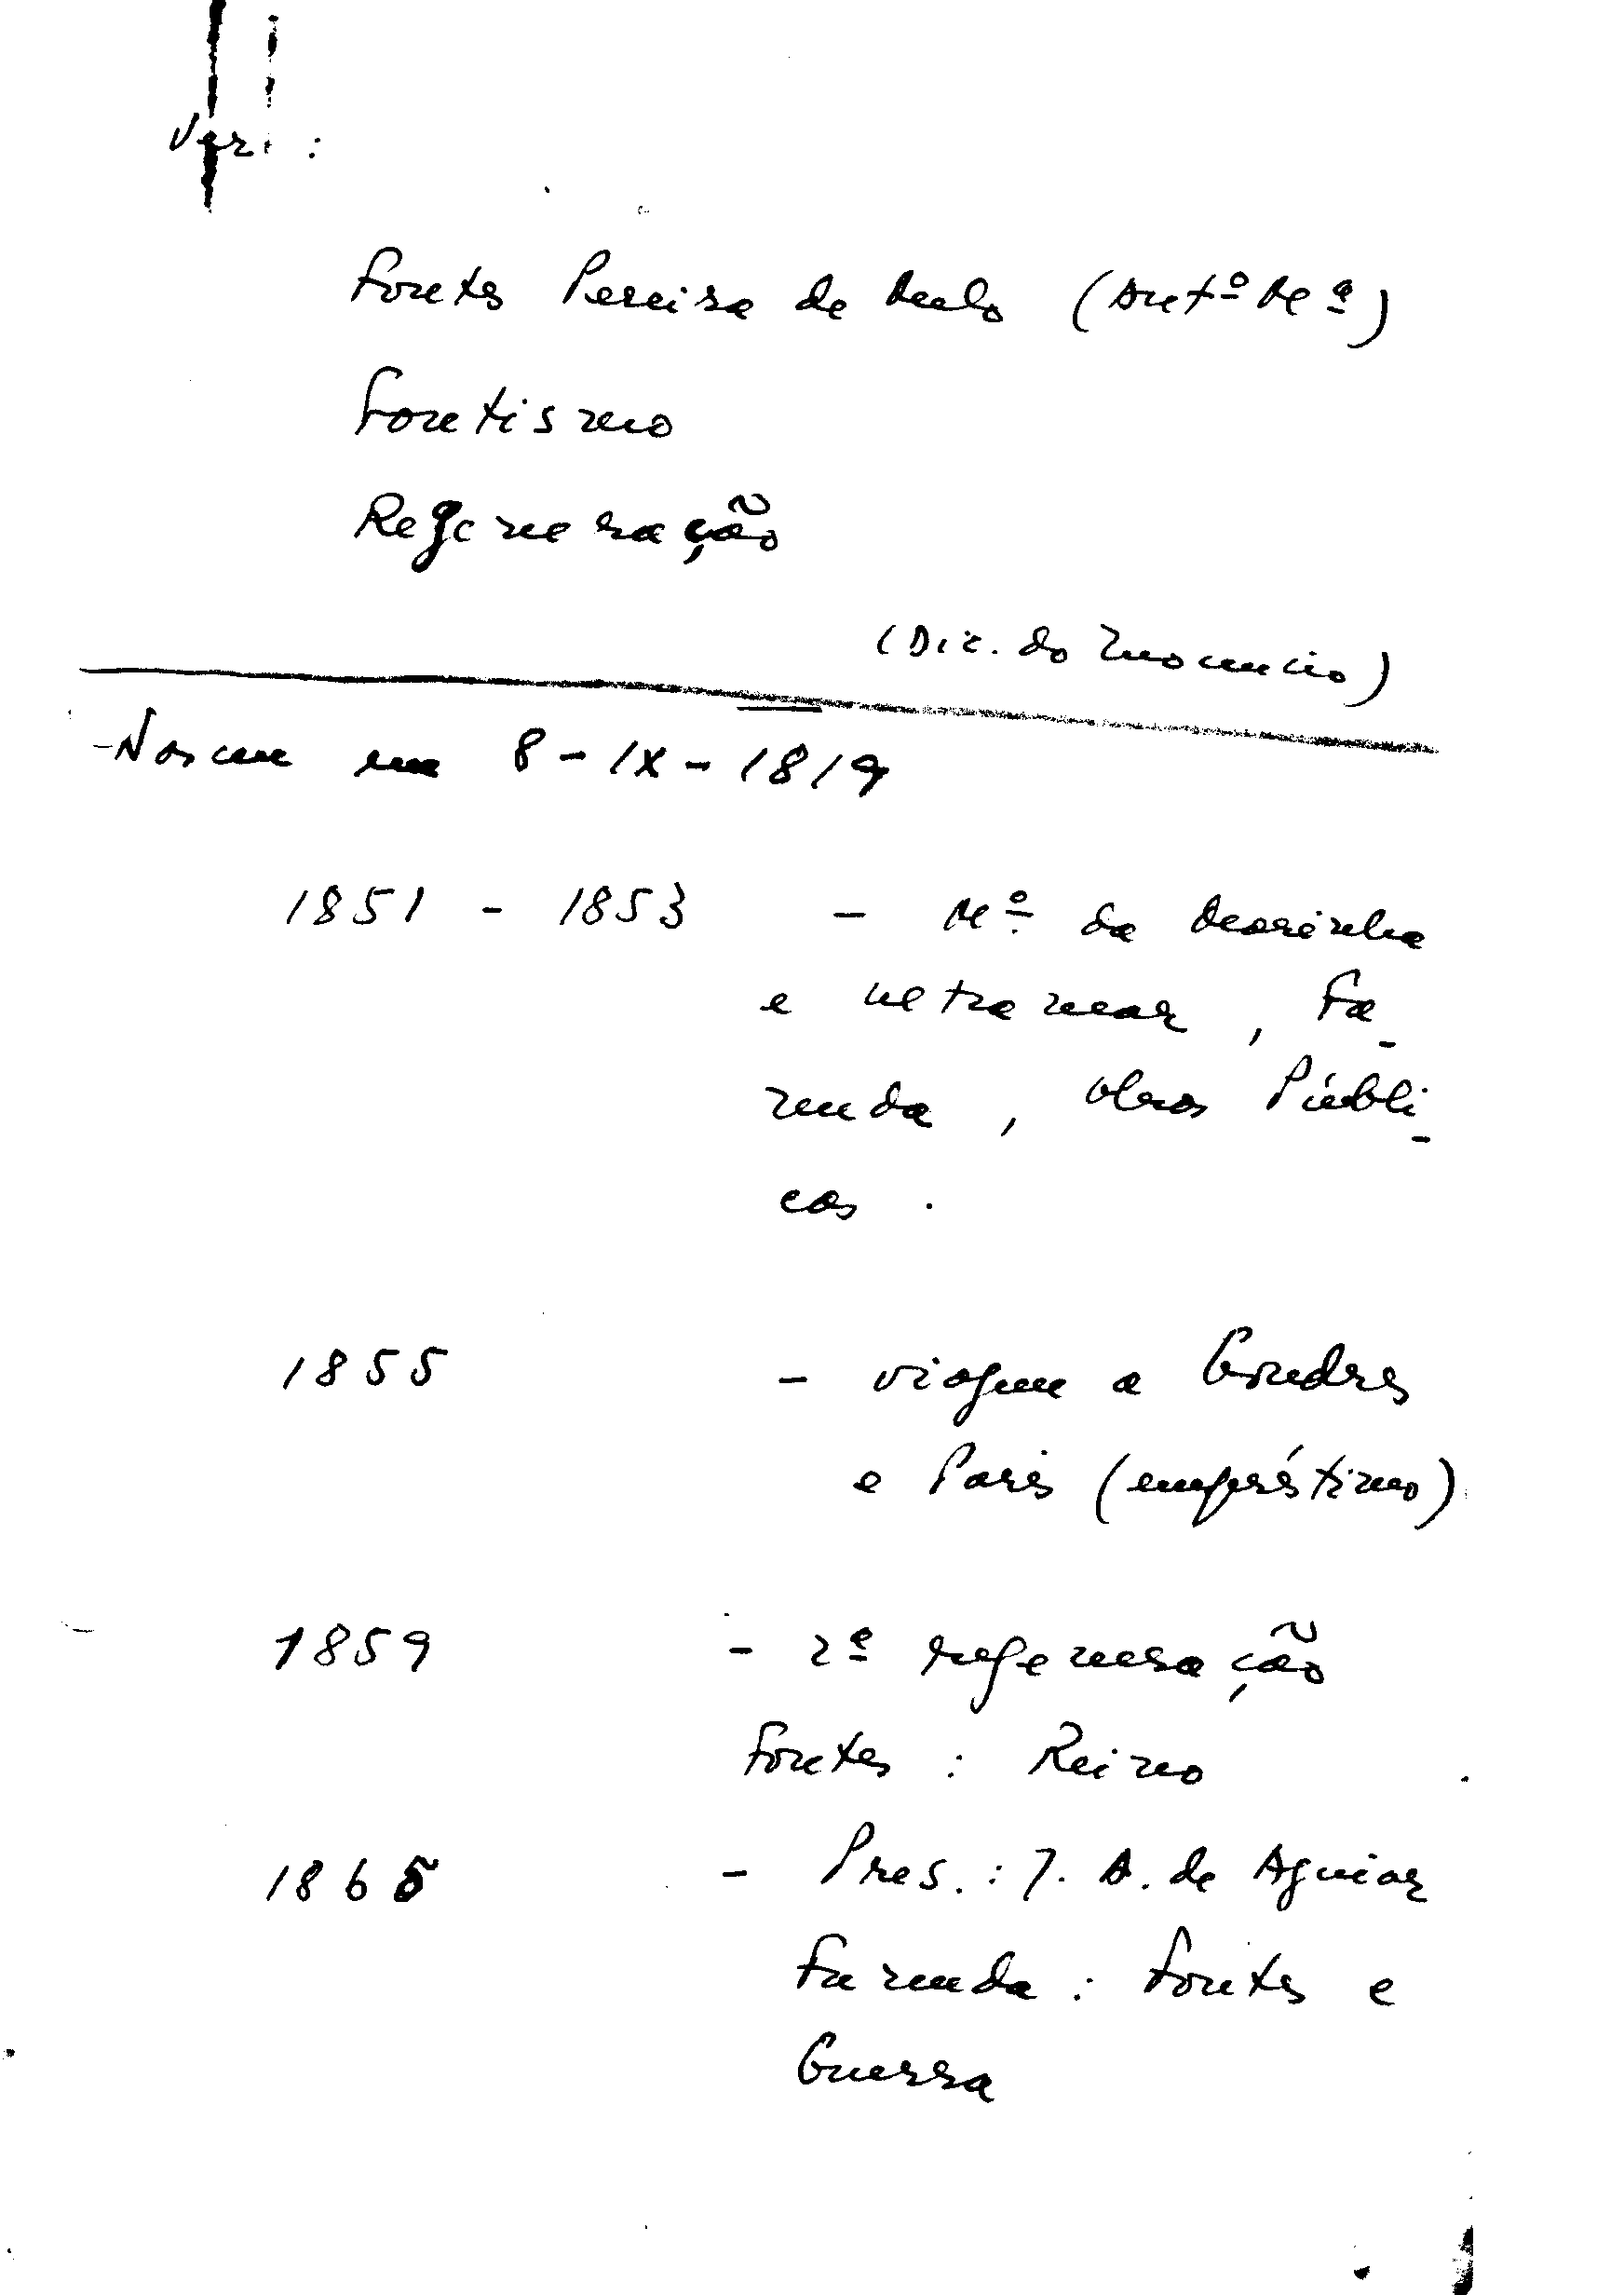 Ver :
Fontes Pereira de Melo (Antº Mª)
Fontismo
Regeneração
(Dic. do Inocencio)
- Nasceu em 8 - IX - 1819
1851 - 1853 - Mº da Marinha
e Ultramar, Fa-
zenda, Obras Públi-
cas.
1855 - viagem a Londres
e Paris (empréstimo)
1859 - 2ª regeneração
Fontes : Reino
1865 - Pres. : J. A. de Aguiar
Fazenda : Fontes e
Guerra